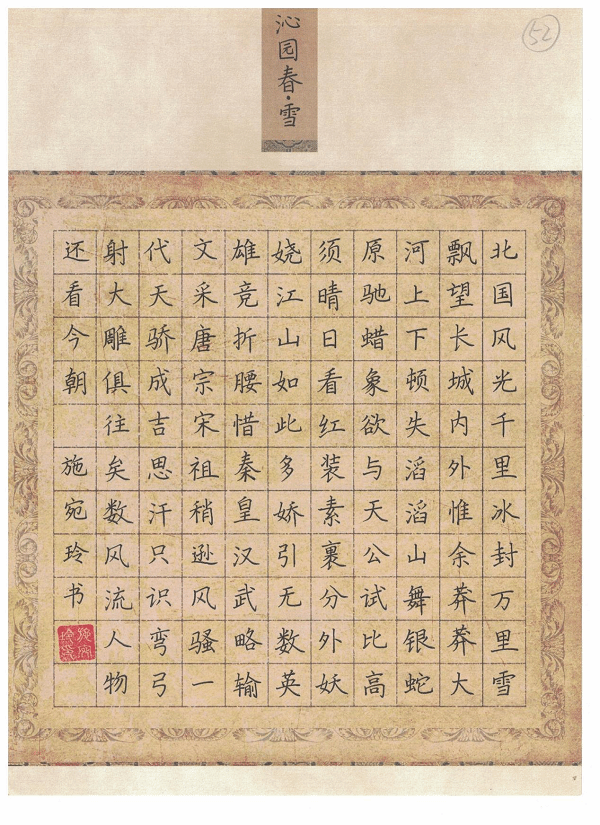 沁园春·雪
52
北国风光千里冰封万里雪
飘望长城内外惟余莽莽大
河上下顿失滔滔山舞银蛇
原驰蜡象欲与天公试比高
须晴日看红装素裹分外妖
娆江山如此多娇引无数英
雄竞折腰惜秦皇汉武略输
文采唐宗宋祖稍逊风骚一
代天骄成吉思汗只识弯弓
射大雕俱往矣数风流人物
还看今朝 施宛玲书